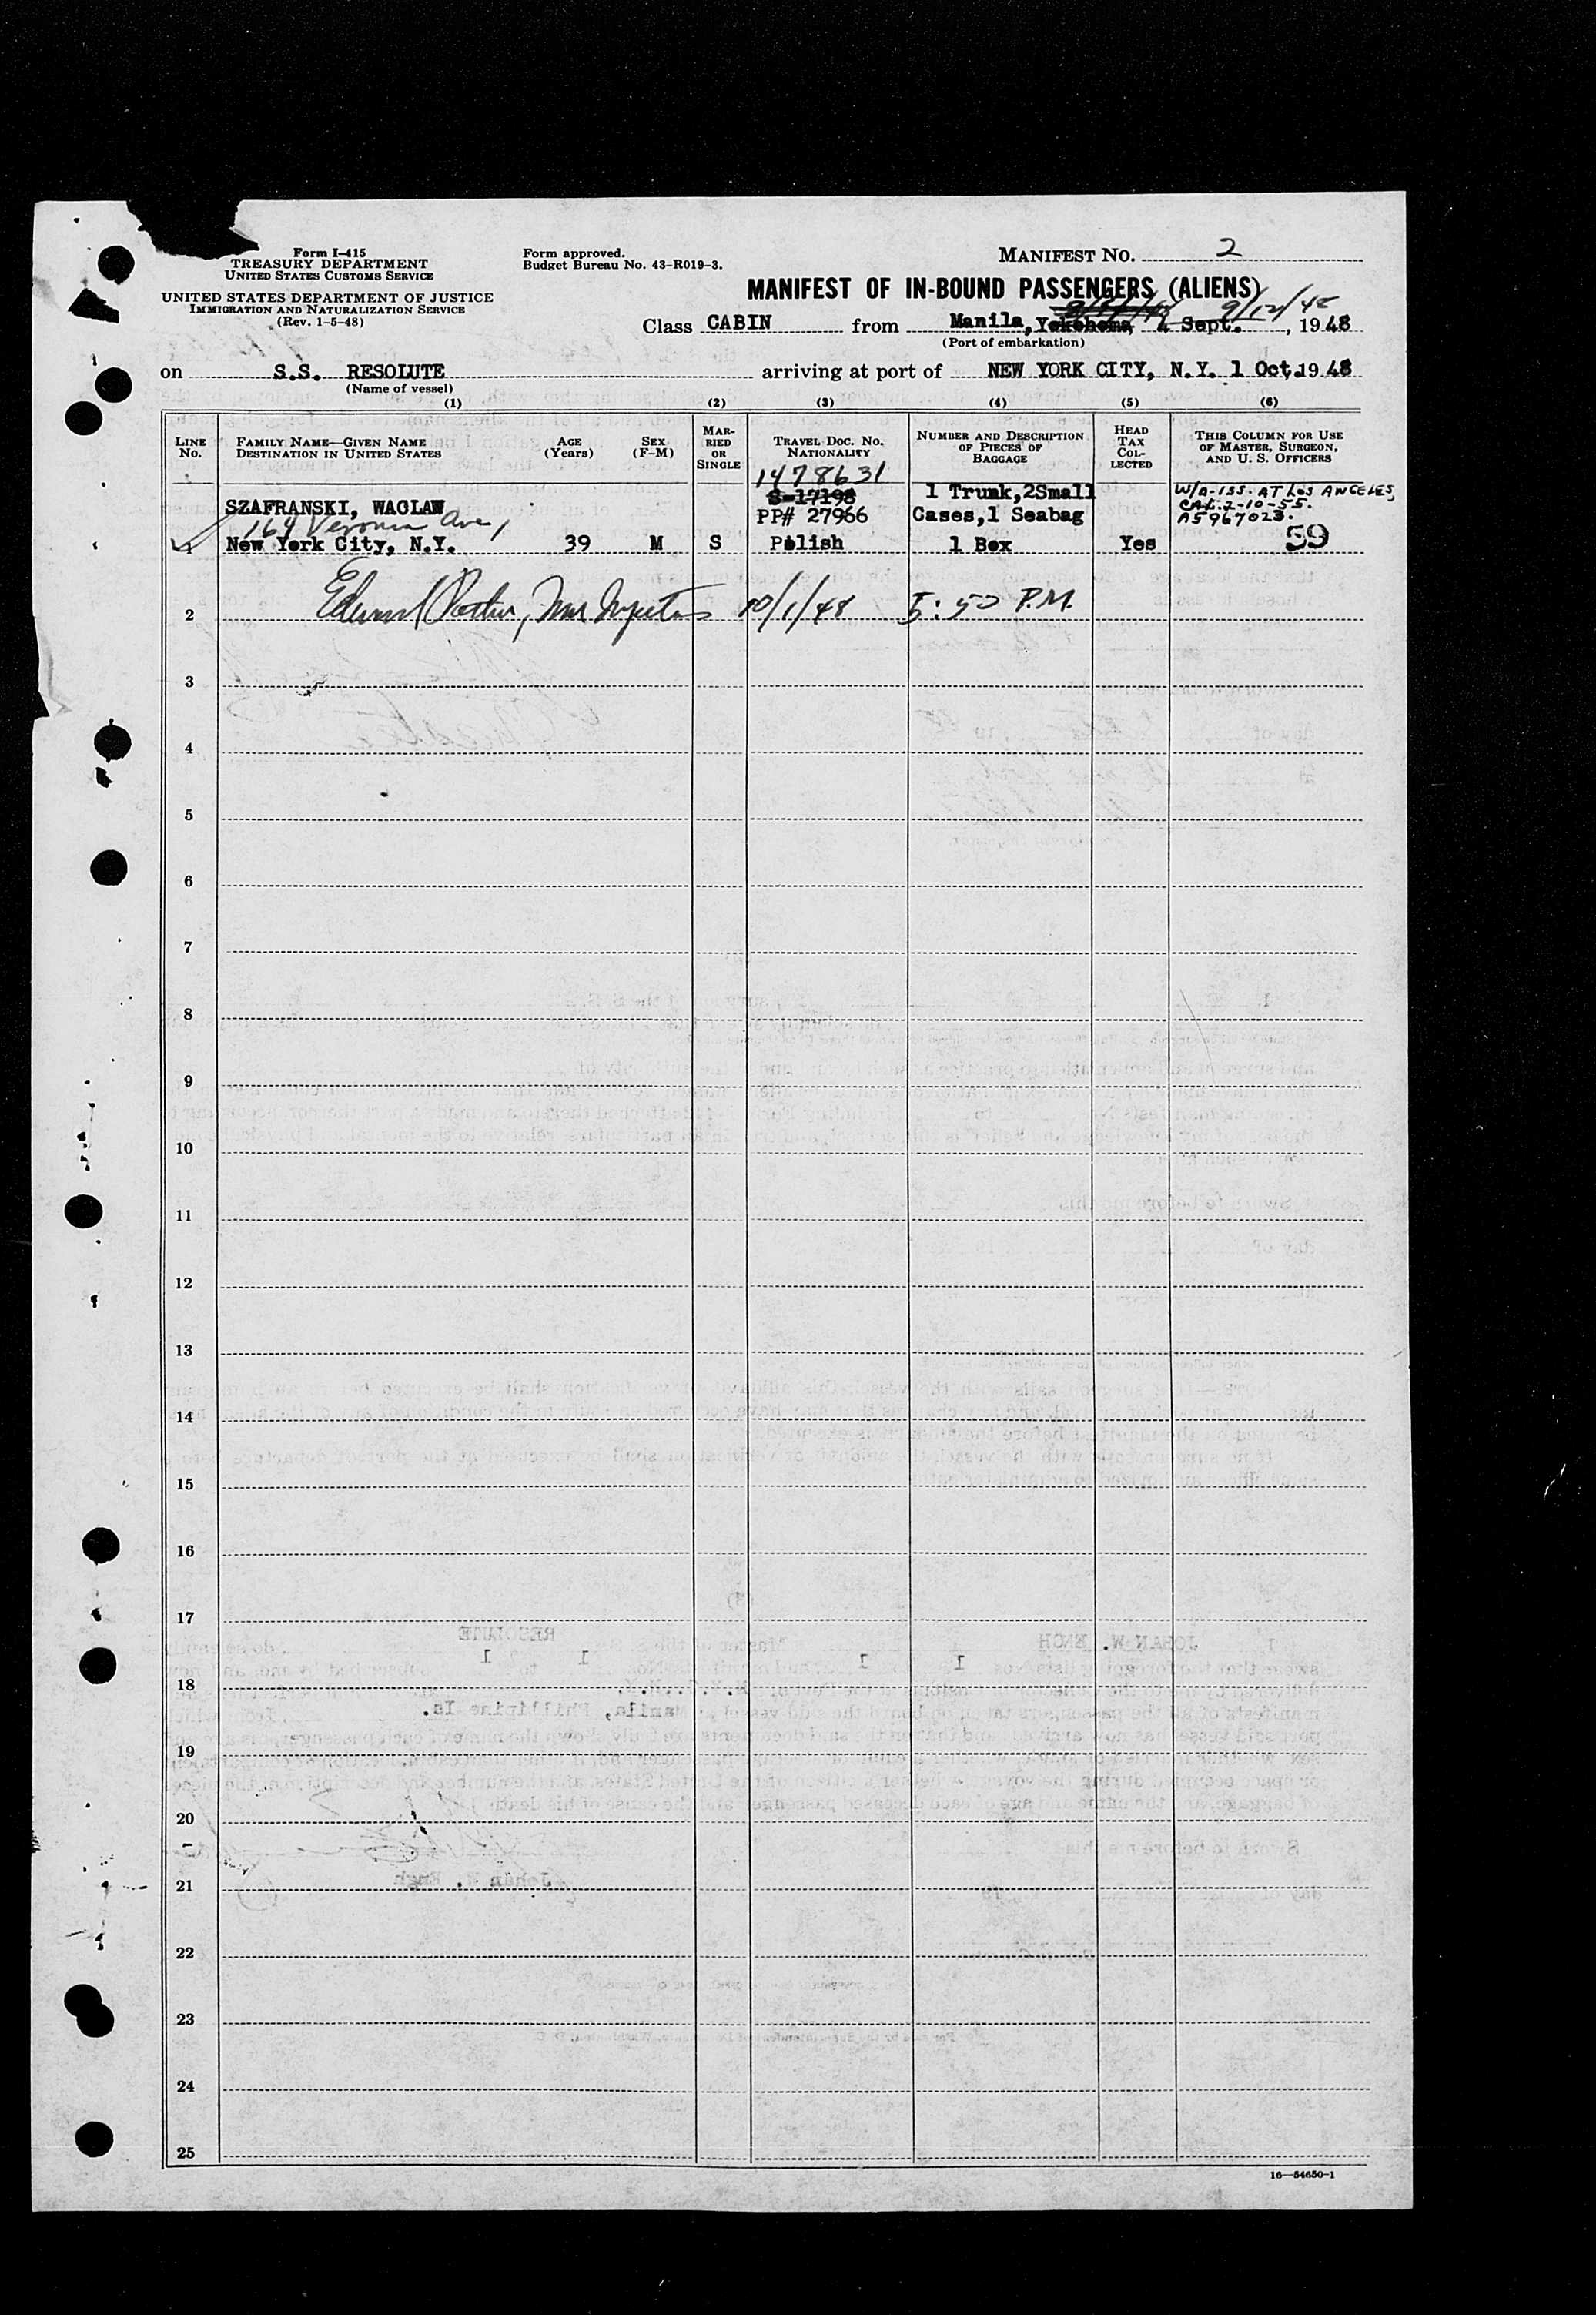 Form I-415
TREASURY DEPARTMENT
UNITED STATES CUSTOMS SERVICE
UNITED STATES DEPARTMENT OF JUSTICE
IMMIGRATION AND NATURALIZATION SERVICE
(Rev. 1-5-48)
Form approved.
Budget Bureau No. 43-R019-3.
MANIFEST NO. 2
MANIFEST OF IN-BOUND PASSENGERS (ALIENS)
9/12/48
Class CABIN from Manila, Yokohoma, 4 Sept., 1948
(Port of embarkation)
on S.S. RESOLUTE arriving at port of NEW YORK CITY, N.Y. 1 Oct. 1948
(Name of vessel)
(1) (2) (3) (4) (5) (6)
LINE No. FAMILY NAME—GIVEN NAME DESTINATION IN UNITED STATES AGE (Years) SEX (F-M) MARRIED OR SINGLE TRAVEL DOC. NO. NATIONALITY NUMBER AND DESCRIPTION OF PIECES OF BAGGAGE HEAD TAX COLLECTED THIS COLUMN FOR USE OF MASTER, SURGEON, AND U. S. OFFICERS
1478631
S-17198 1 Trunk,2Small W/A-ISS. AT LOS ANGELES,
SZAFRANSKI, WACLAW PP# 27966 Cases,1 Seabag CAL. 2-10-55.
164 Ave, A5967023.
1 New York City, N.Y. 39 M S Polish 1 Box Yes 59
2 Edward 10/1/48 5:50 P.M.
3
4
5
6
7
8
9
10
11
12
13
14
15
16
17
18
19
20
21
22
23
24
25
16—54650-1